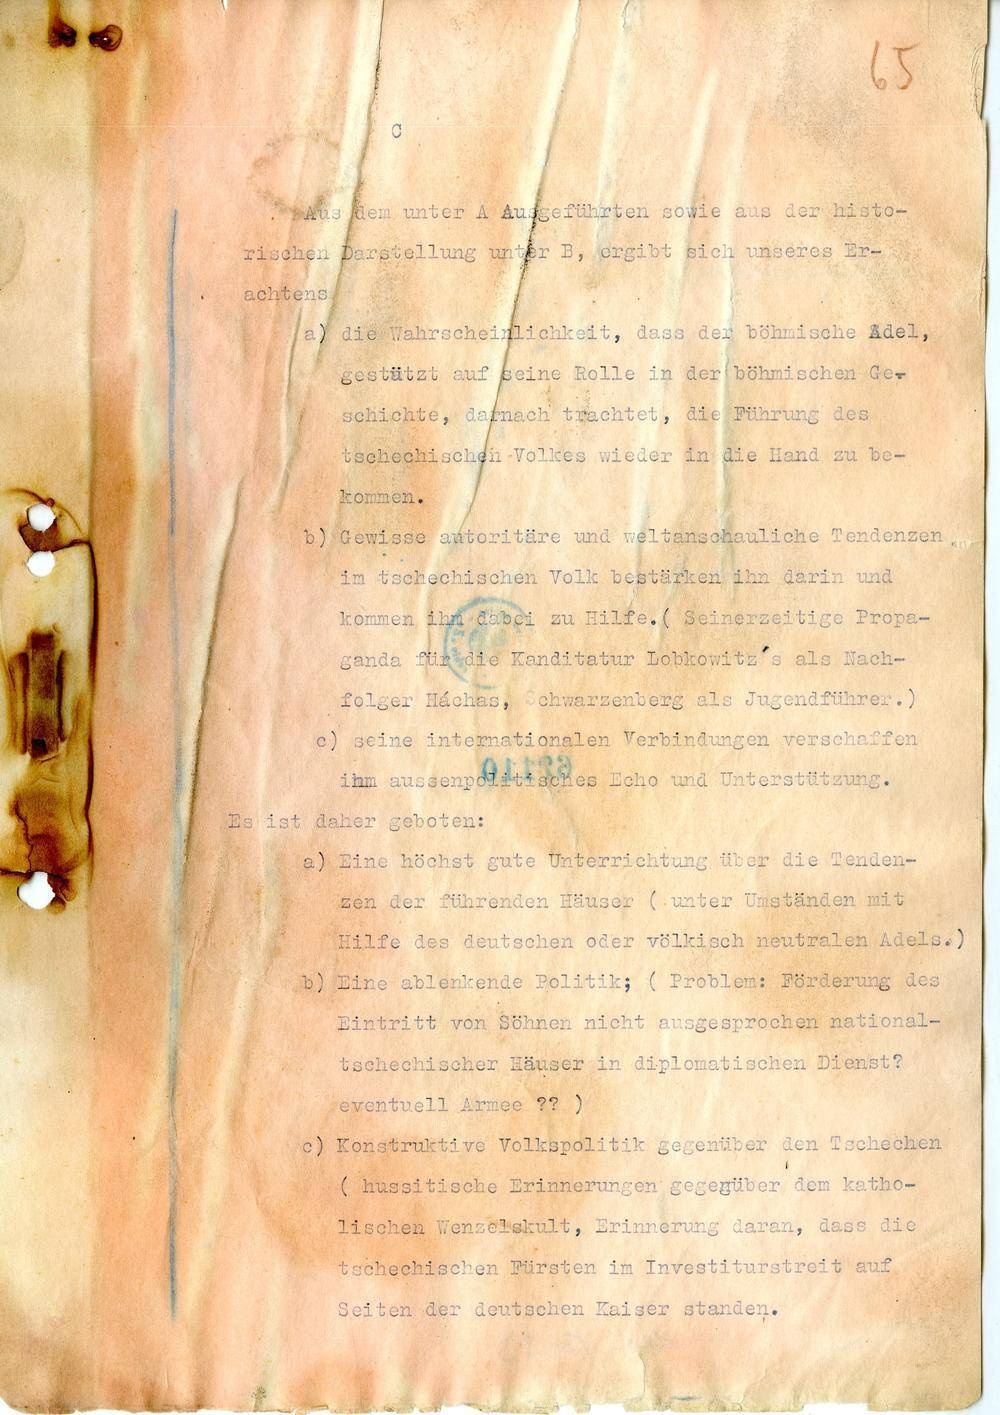 65
C
Aus dem unter A Ausgeführten sowie aus der histo-
rischen Darstellung unter B, ergibt sich unseres Er-
achtens
a) die Wahrscheinlichkeit, dass der böhmische Adel,
gestützt auf seine Rolle in der böhmischen Ge-
schichte, darnach trachtet, die Führung des
tschechischen Volkes wieder in die Hand zu be-
kommen.
b) Gewisse autoritäre und weltanschauliche Tendenzen
im tschechischen Volk bestärken ihn darin und
kommen ihm dabei zu Hilfe.( Seinerzeitige Propa-
ganda für die Kanditatur Lobkowitz's als Nach-
folger Háchas, Schwarzenberg als Jugendführer.)
c) seine internationalen Verbindungen verschaffen
ihm aussenpolitisches Echo und Unterstützung.
Es ist daher geboten:
a) Eine höchst gute Unterrichtung über die Tenden-
zen der führenden Häuser ( unter Umständen mit
Hilfe des deutschen oder völkisch neutralen Adels.)
b) Eine ablenkende Politik; ( Problem: Förderung des
Eintritt von Söhnen nicht ausgesprochen national-
tschechischer Häuser in diplomatischen Dienst?
eventuell Armee ?? )
c) Konstruktive Volkspolitik gegenüber den Tschechen
( hussitische Erinnerungen gegenüber dem katho-
lischen Wenzelskult, Erinnerung daran, dass die
tschechischen Fürsten im Investiturstreit auf
Seiten der deutschen Kaiser standen.